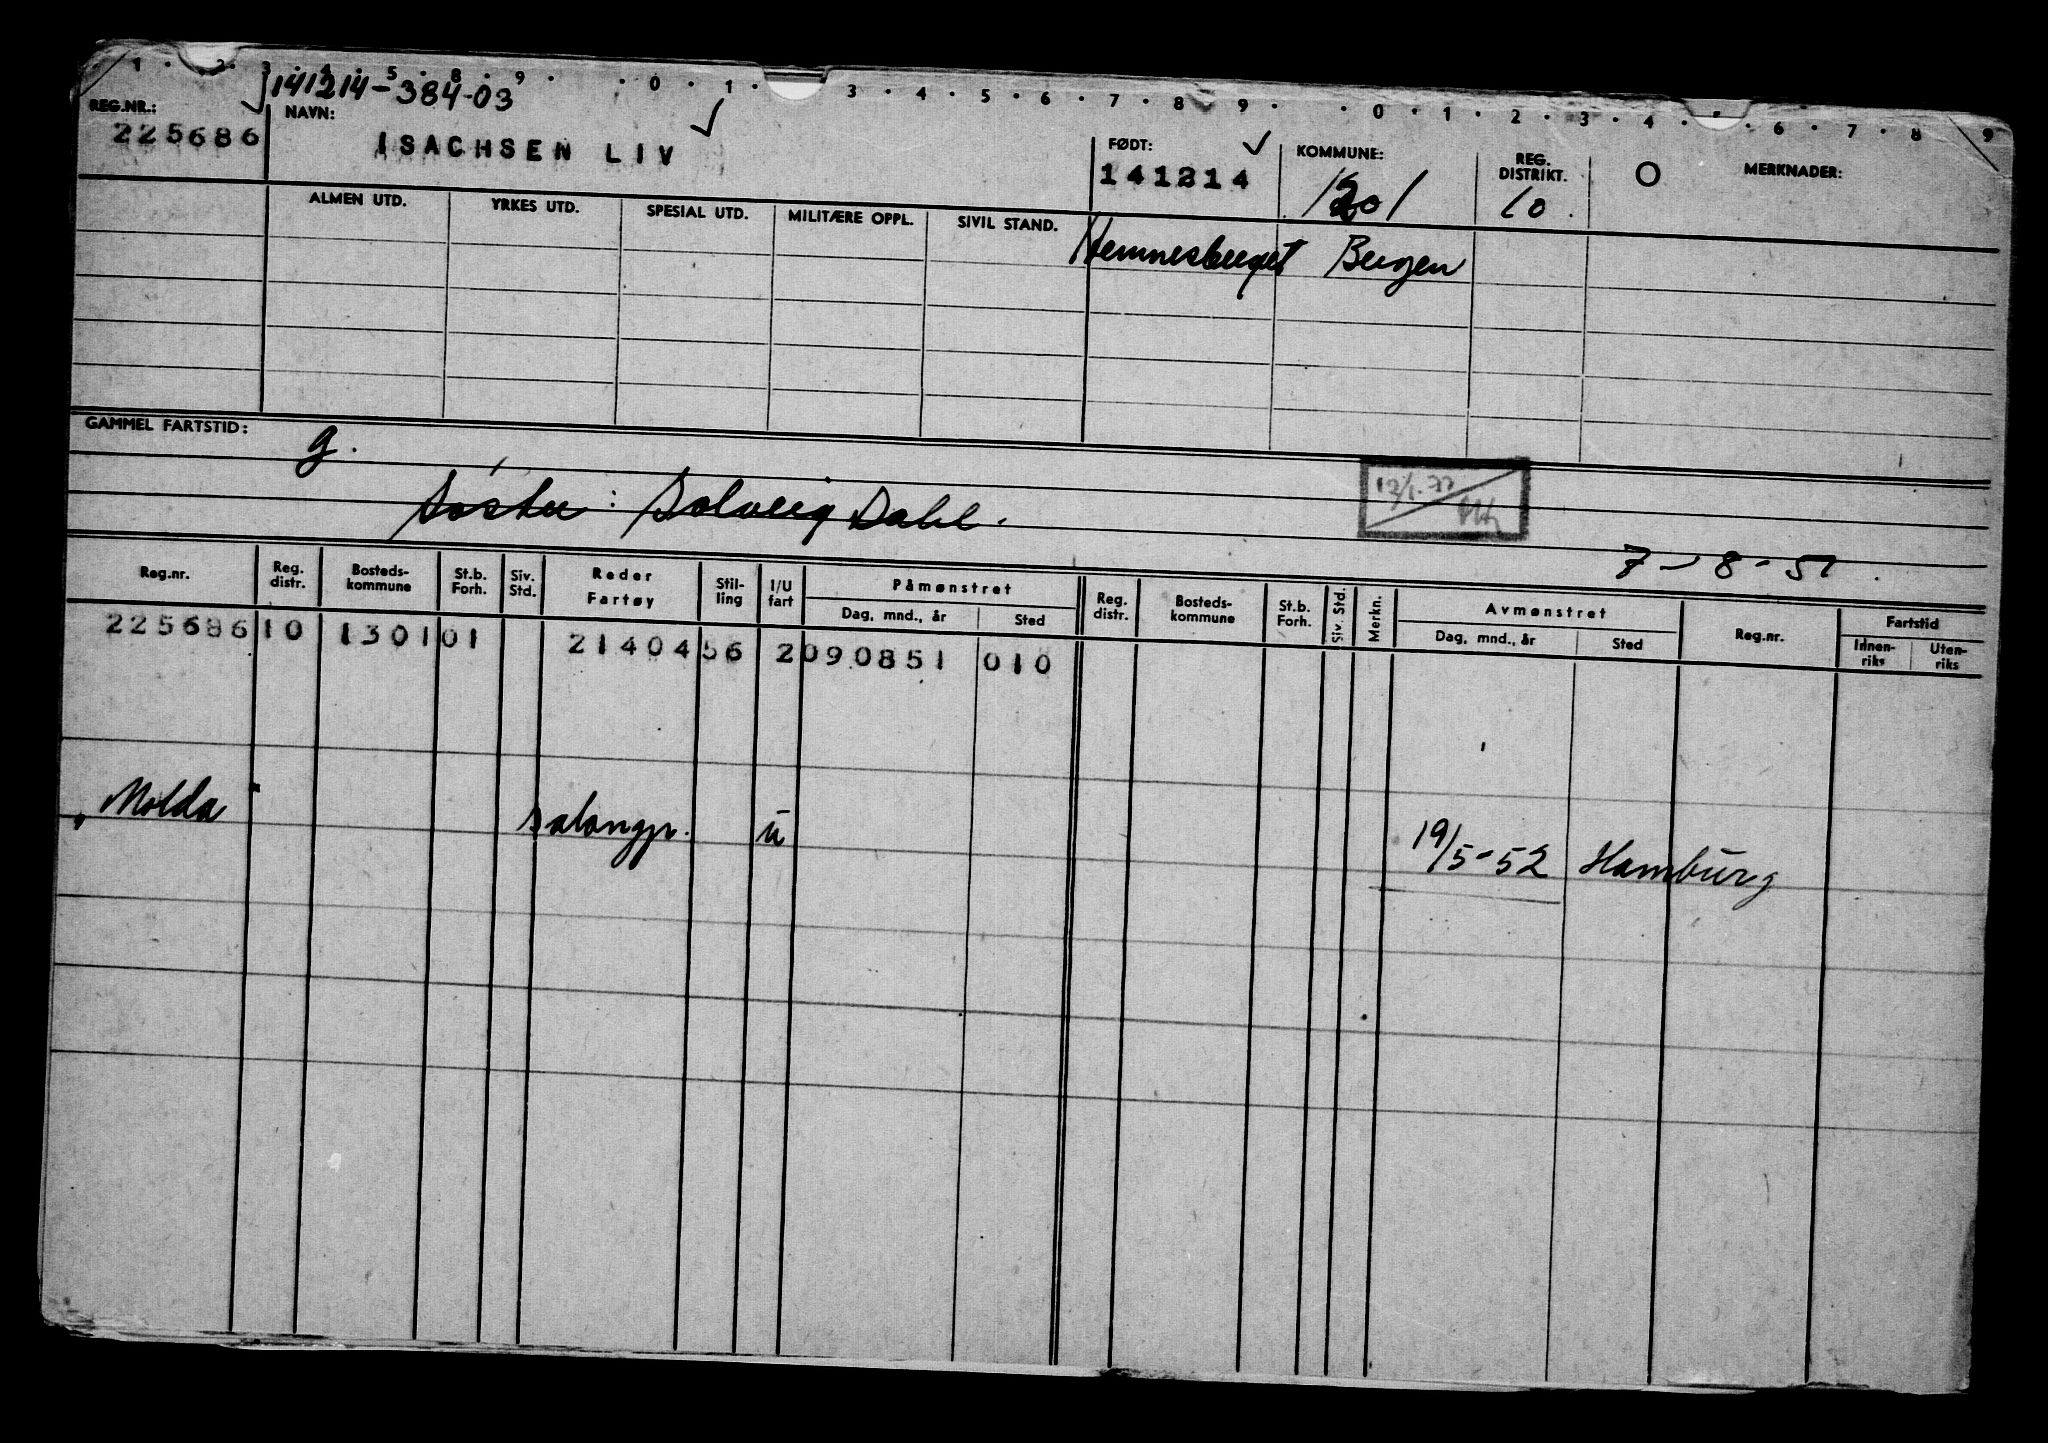 1 · 2 · 3 · 4 · 5 · 8 · 9 · · 0 · 1 · 3 · 4 · 5 · 6 · 7 · 8 9 · · 0 · 1 · 2 · 3 · 4 · · 6 · 7 · 8 9
141214-384-03
REG.NR.: NAVN: FØDT: KOMMUNE: REG. DISTRIKT. O MERKNADER:
225686 ISACHSEN LIV 141214 1301 10.
ALMEN UTD. YRKES UTD. SPESIAL UTD. MILITÆRE OPPL. SIVIL STAND.
Hemnesberget Bergen
GAMMEL FARTSTID: g.
Søster: Solveig Dahl.
7-8-51.
Reg.nr. Reg. distr. Bosteds-kommune St.b. Forh. Siv. Std. Reder Fartøy Stil-ling I/U fart Påmønstret Dag, mnd., år Sted Reg. distr. Bosteds-kommune St.b. Forh. Siv. Std. Merkn. Avmønstret Dag, mnd., år Sted Reg.nr. Fartstid Innen-riks Uten-riks
225686 10 1301 01 21404 56 2 090851 010
"Molda" salongp. u 19/5-52 Hamburg